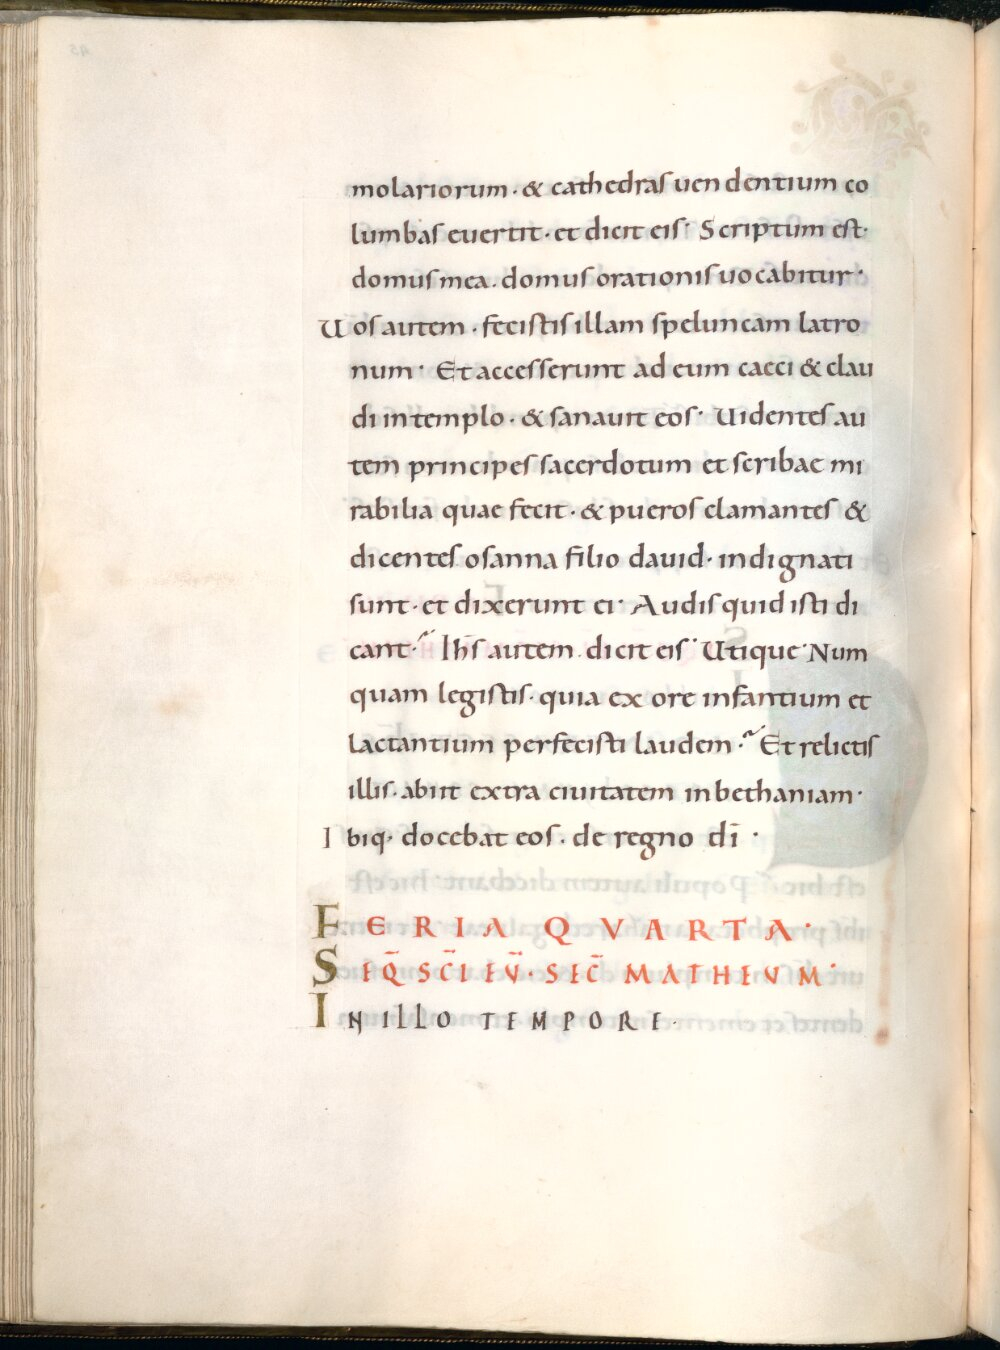 molariorum · & cathedras uendentium co
lumbas euertit · et dicit eis · Scriptum est ·
domus mea . domus orationis uocabitur ·
Uos autem · fecistis illam speluncam latro
num · Et accesserunt ad eum caeci & clau
di in templo · & sanauit eos · Uidentes au
tem principes sacerdotum et scribae mi
rabilia quae fecit · & pueros clamantes &
dicentes osanna filio dauid · indignati
sunt · et dixerunt ei · Audis quid isti di
cant · Ihs̄ autem dicit eis · Utique · Num
quam legistis · quia ex ore infantium et
lactantium perfecisti laudem · Et relictis
illis · abiit extra ciuitatem in bethaniam ·
Ibiq· docebat eos · de regno dī ·
FERIA QVARTA ·
SEQ̄ SC̄I EV̄ · SEC̄ MATHEVM ·
IN ILLO TEMPORE ·